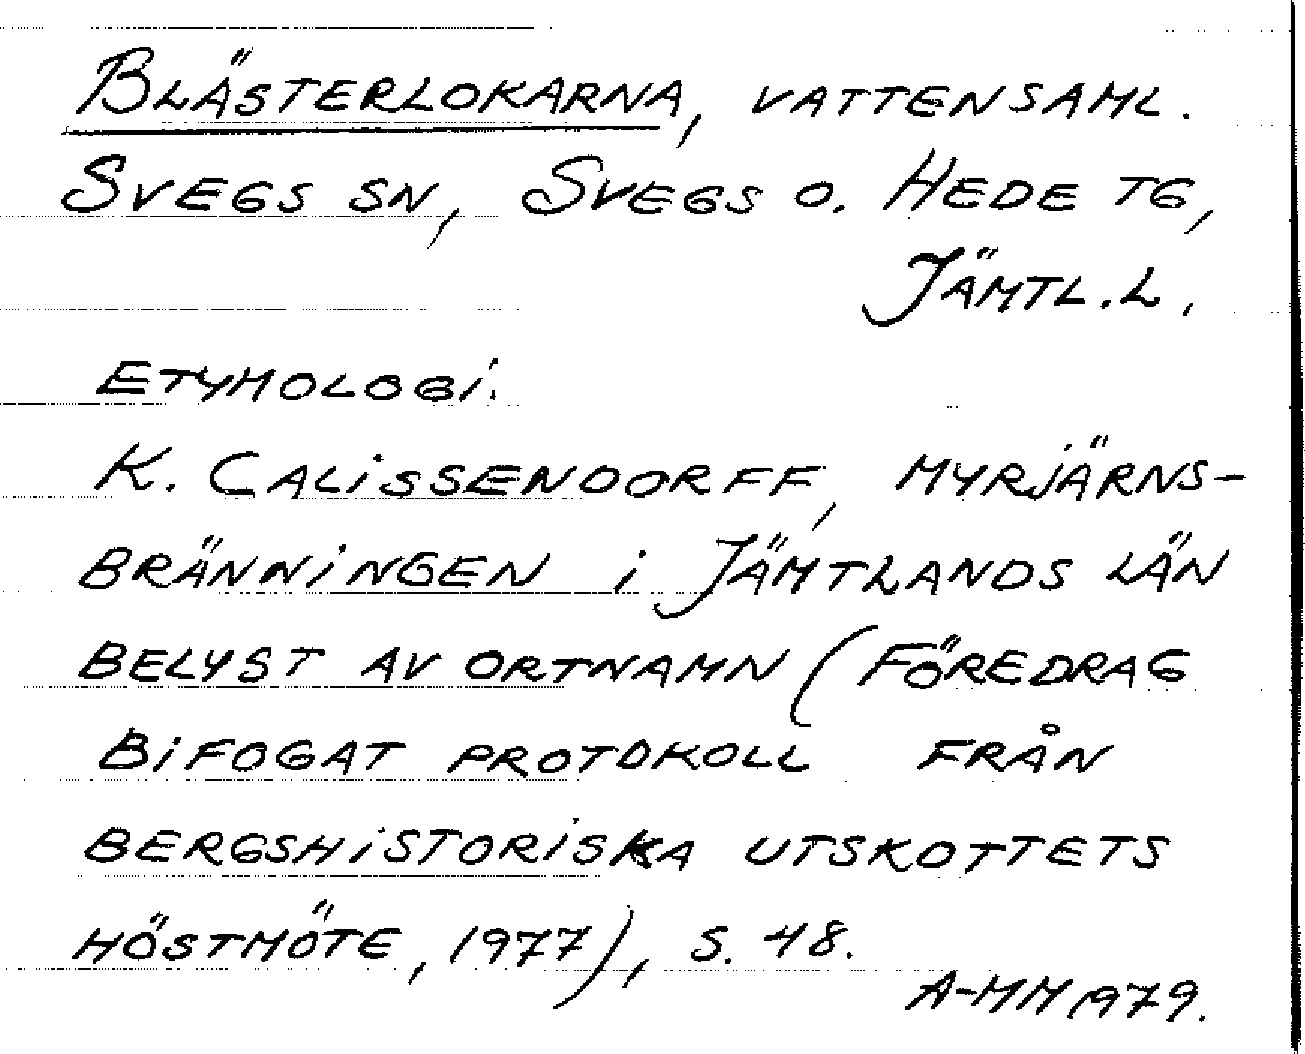 BLÄSTERLOKARNA, VATTENSAML.
SVEGS SN, SVEGS O. HEDE TG,
JÄMTL.L.
ETYMOLOGI.
K. CALISSENDORFF, MYRJÄRNS-
BRÄNNINGEN I JÄMTLANDS LÄN
BELYST AV ORTNAMN (FÖREDRAG
BIFOGAT PROTOKOLL FRÅN
BERGSHISTORISKA UTSKOTTETS
HÖSTMÖTE, 1977), S. 48.
A-MM 1979.